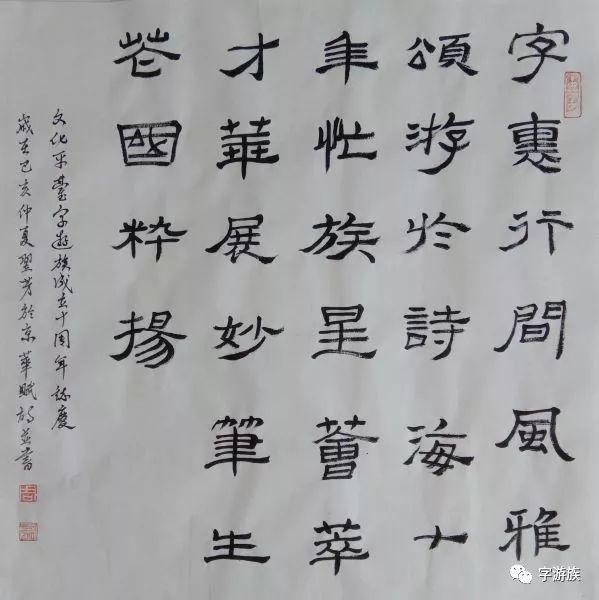 字裏行間風雅
頌游於詩海十
年忙族星薈萃
才華展妙筆生
花國粹揚
文化平臺字遊族成立十周年誌慶
歲在己亥仲夏芳於京華賦詩並書
字游族